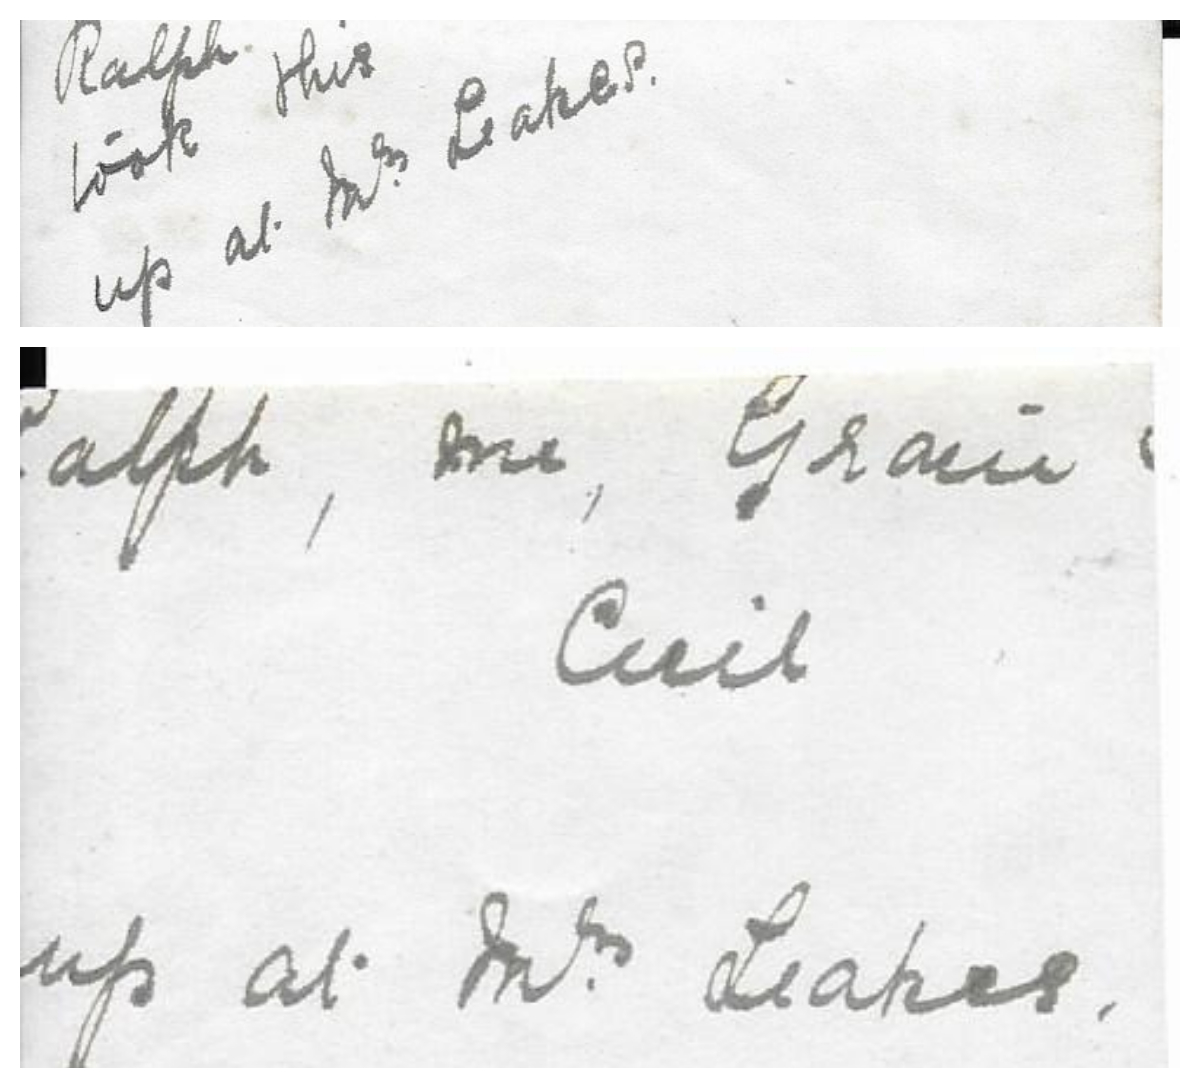 Ralph.
took this
up at Mrs Leakes.
Ralph, me, Gracie
Cecil
up at Mrs Leakes.